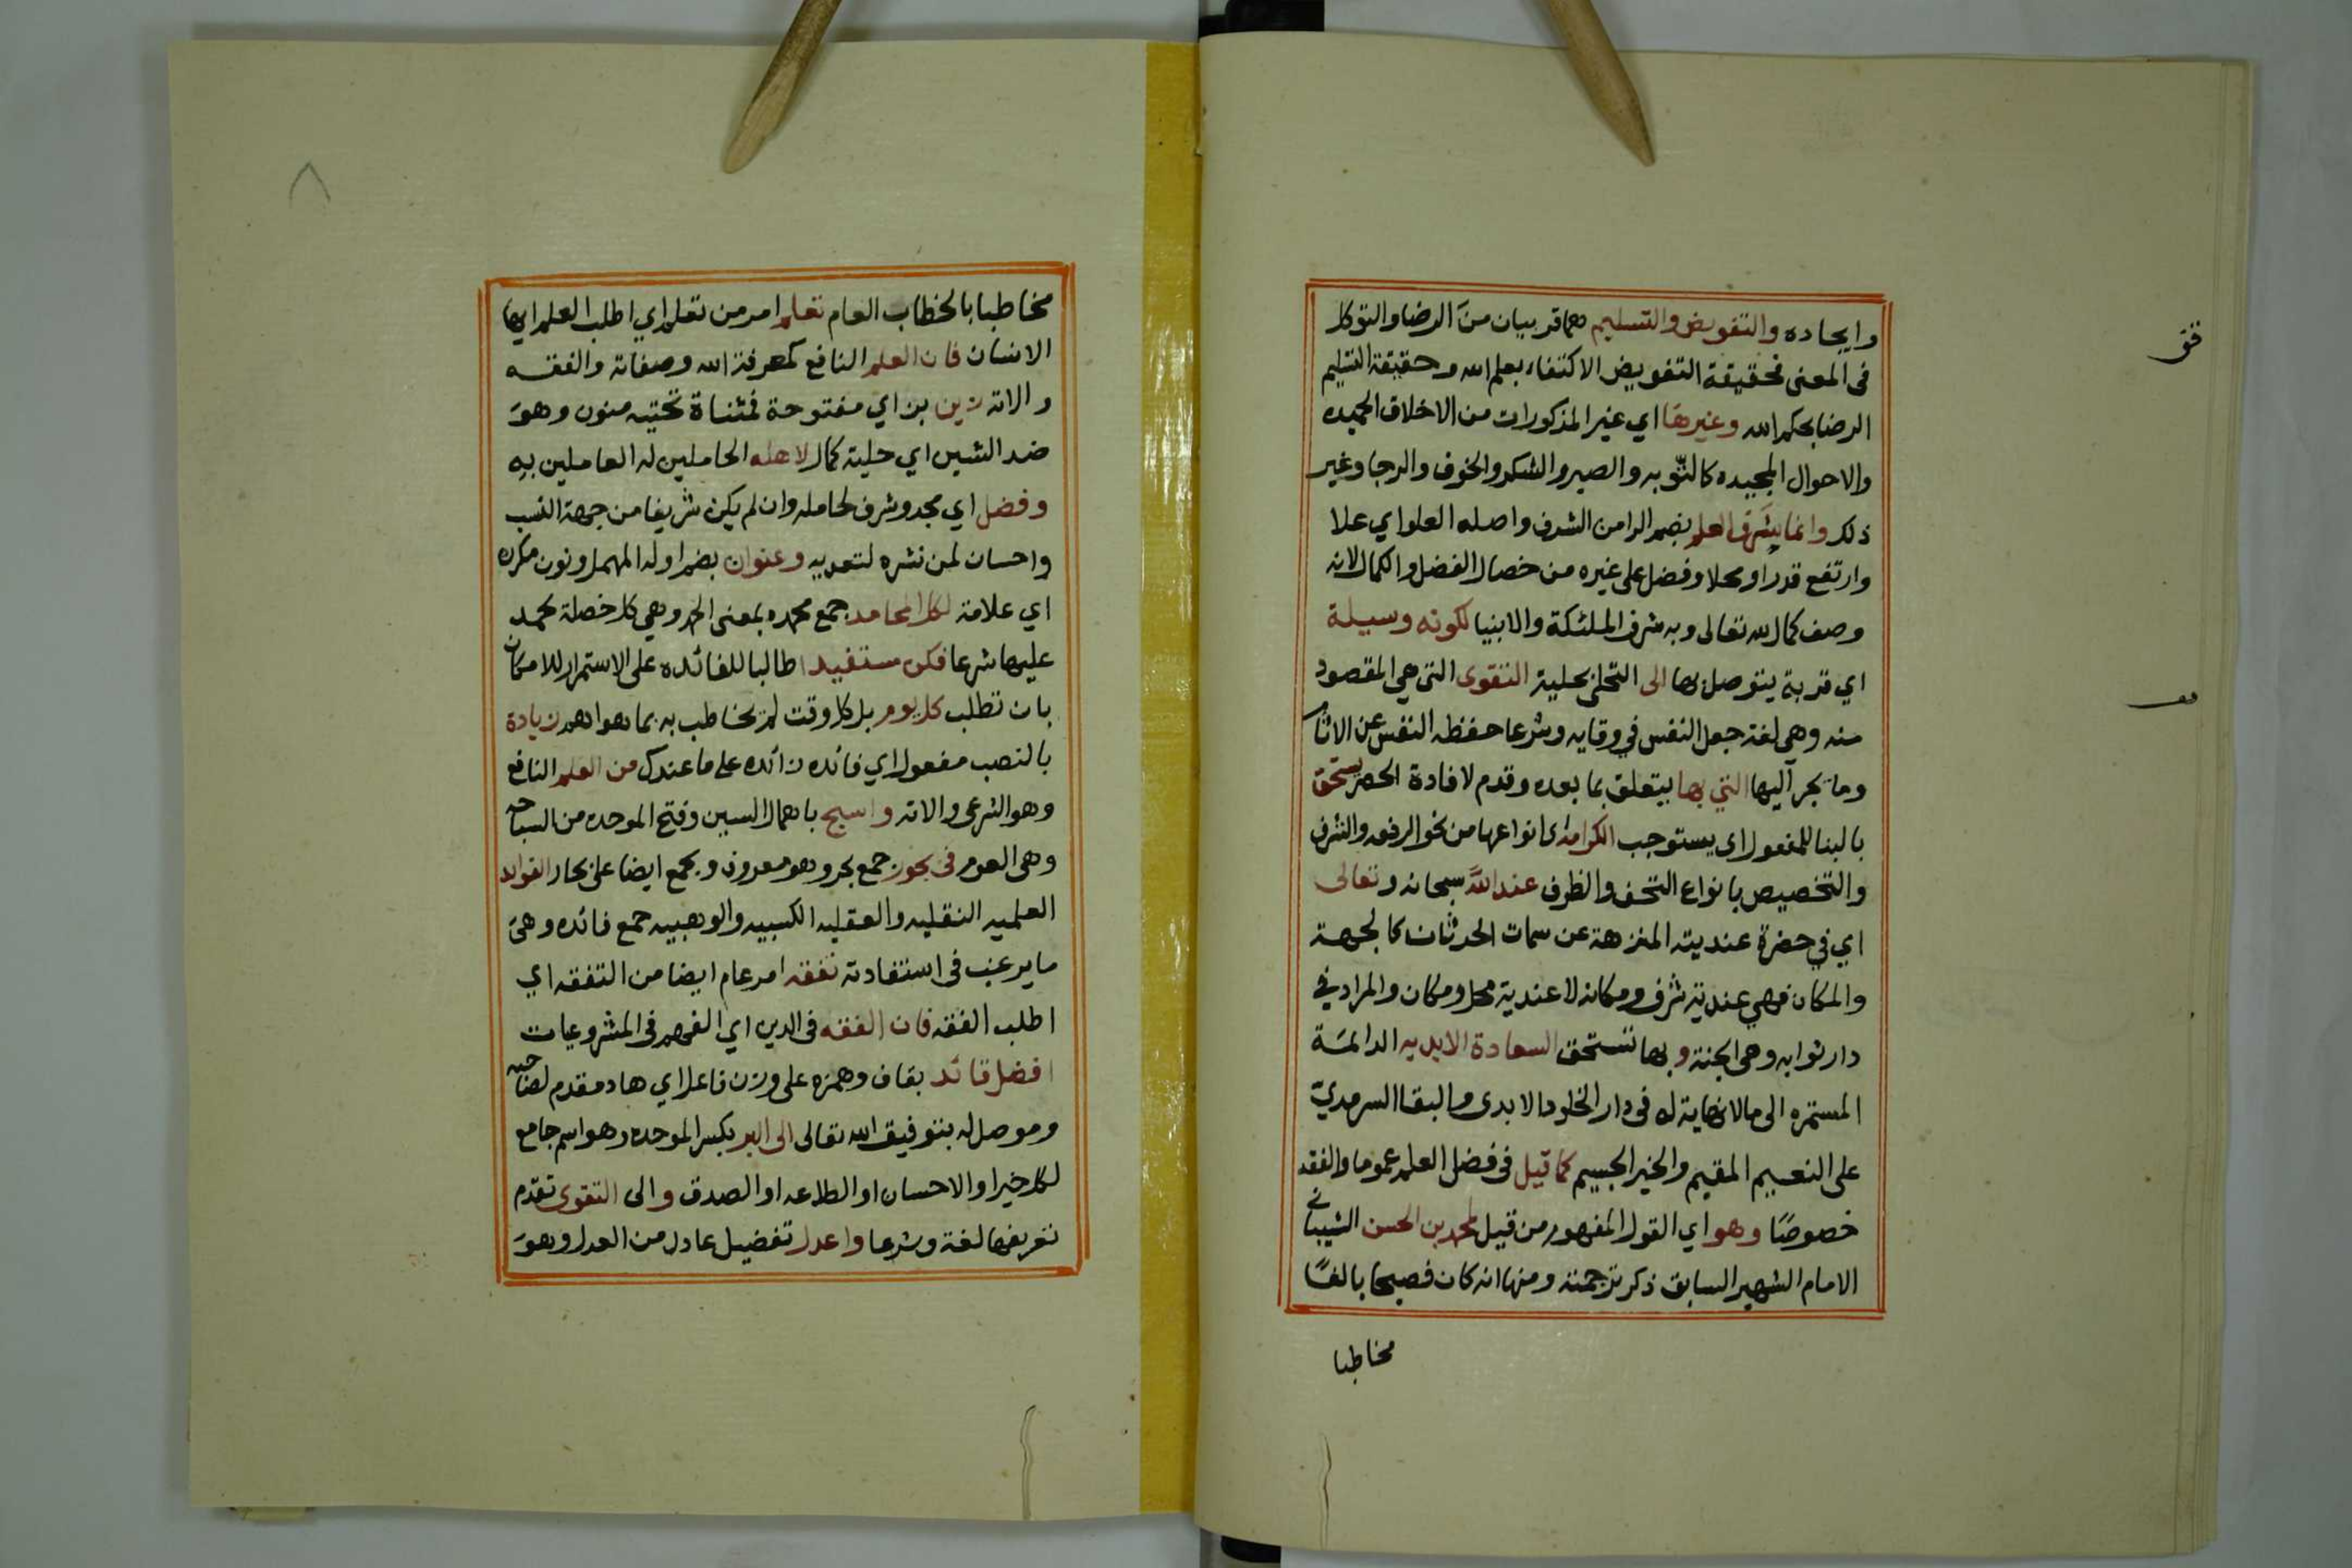 وايجاده والتفويض والتسليم هما قريبان من الرضا والتوكل
في المعنى فحقيقة التفويض الاكتفاء بعلم الله وحقيقة التسليم
الرضا بحكم الله وغيرها اي غير المذكورات من الاخلاق الحميده
والاحوال المجيده كالتوبه والصبر والشكر والخوف والرجا وغير
ذلك وانما يشرف العلم بضم الرا من الشرف واصله العلو اي علا
وارتفع قدرا ومحلا وفضل على غيره من خصال الفضل والكمال لانه
وصف كمال لله تعالى وبه شرف الملئكة والانبيا لكونه وسيلة
اي قربة يتوصل بها الى التحلى بحلية التقوى التى هي المقصود
منه وهي لغة جعل النفس في وقايه وشرعا حفظ النفس عن الاثام
وما يجر اليها التي بها يتعلق بما بعده وقدم لافادة الحصر يستحق
بالبنا للمفعول اى يستوجب الكرامة اى انواعها من نحو الرفعه والشرف
والتخصيص بانواع التحف والظرف عند الله سبحانه وتعالى
اي في حضرة عنديته المنزهة عن سمات الحدثان كالجهة
والمكان فهي عندية شرف ومكانه لا عندية محل ومكان والمراد في
دار ثوابه وهي الجنة وبها تستحق السعادة الابديه الدائمة
المستمره الى ما لا نهاية له في دار الخلود الابدى والبقا السرمدي
على النعيم المقيم والخير الجسيم كما قيل في فضل العلم عموما والفقه
خصوصًا وهو اي القول المفهوم من قيل لمحمد بن الحسن الشيباني
الامام الشهير السابق ذكر ترجمته ومنها انه كان فصيحا بالغًا
مخاطبا
فق
مخاطبا بالخطاب العام تعلم امر من تعلم اي اطلب العلم ايها
الانسان فان العلم النافع كمعرفة الله وصفاته والفقه
والاته زين بزاي مفتوحة فمثناة تحتيه منون وهو
ضد الشين اي حلية كمال لاهله الحاملين له العاملين به
وفضل اي مجد وشرف لحامله وان لم يكن شريفا من جهة النسب
واحسان لمن نشره لتعديه وعنوان بضم اوله المهمل ونون مكرره
اي علامة لكل المحامد جمع محمده بمعنى الحمد وهي كل خصلة يحمد
عليها شرعا فكن مستفيدا طالبا للفائده على الاستمرار للامكان
بان تطلب كل يوم بل كل وقت لم تخاطب به بما هو اهم زيادة
بالنصب مفعول اي فائده زائده على ما عندك من العلم النافع
وهو الشرعى والاته واسبح باهمال السين وفتح الموحده من السباحه
وهى العوم فى بحور جمع بحر وهو معروف ويجمع ايضا على بحار الفوائد
العلميه النقليه والعقليه الكسبيه والوهبيه جمع فائده وهى
ما يرغب فى استفادته تفقه امر عام ايضا من التفقه اي
اطلب الفقه فان الفقه فى الدين اي الفهم فى المشروعيات
افضل قائد بقاف وهمزه على وزن فاعل اي هاد مقدم لصاحبه
وموصل له بتوفيق الله تعالى الى البر بكسر الموحده وهو اسم جامع
لكل خير او الاحسان او الطاعه او الصدق والى التقوى تقدم
تعريفها لغة وشرعا واعدل تفضيل عادل من العدل وهو